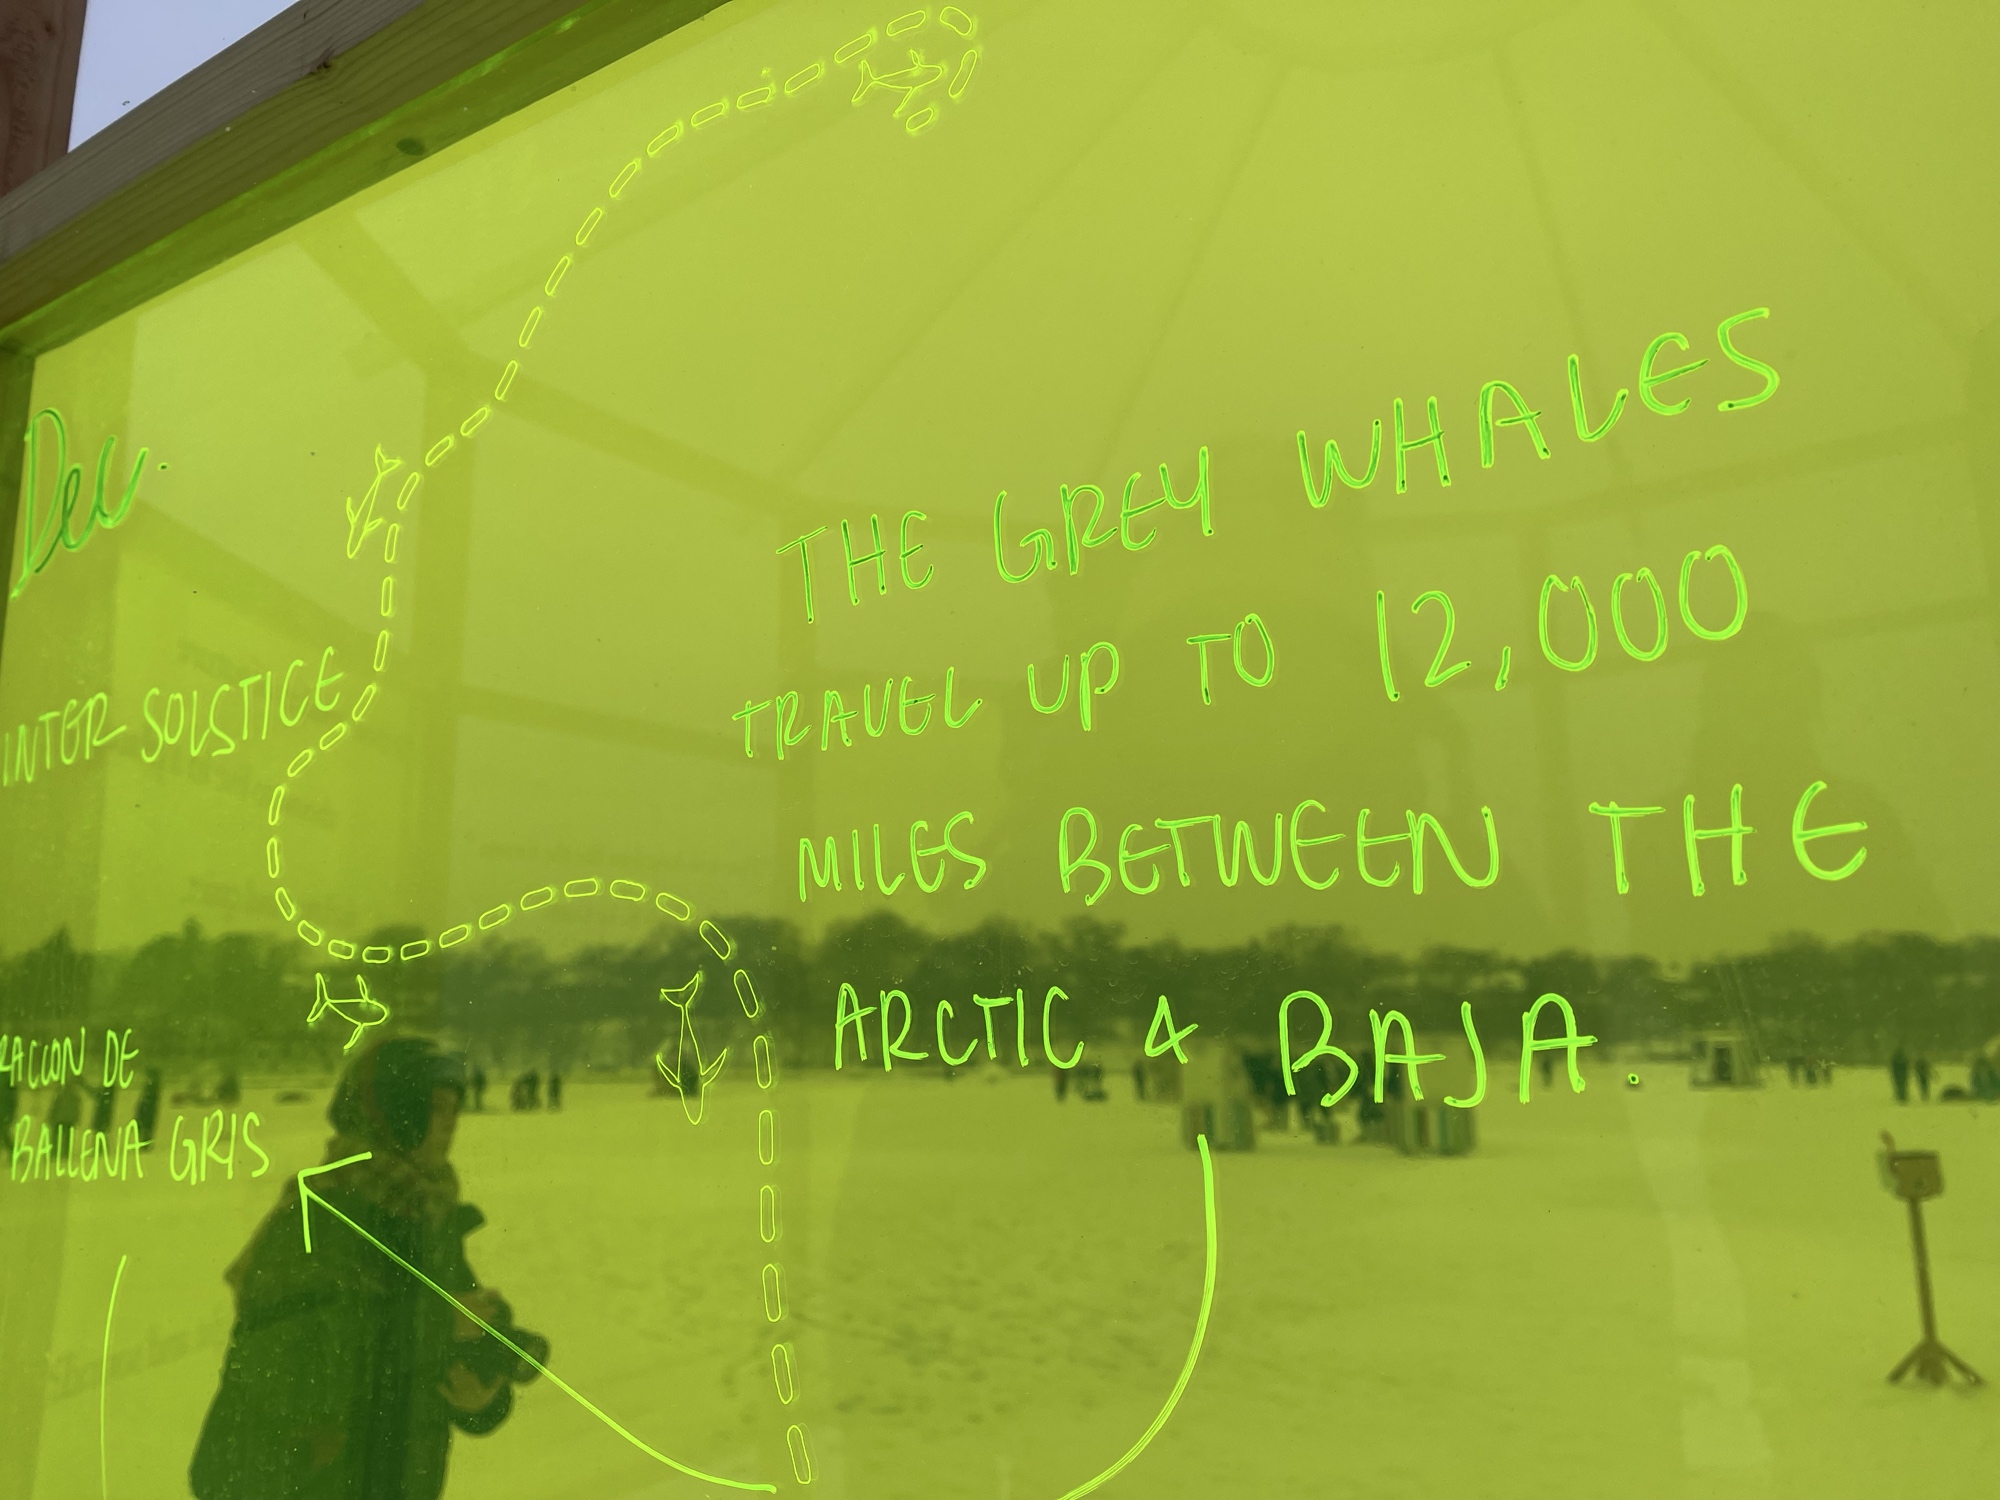 Dec.
INTER SOLSTICE
RACION DE
BALLENA GRIS
THE GREY WHALES
TRAVEL UP TO 12,000
MILES BETWEEN THE
ARCTIC & BAJA.